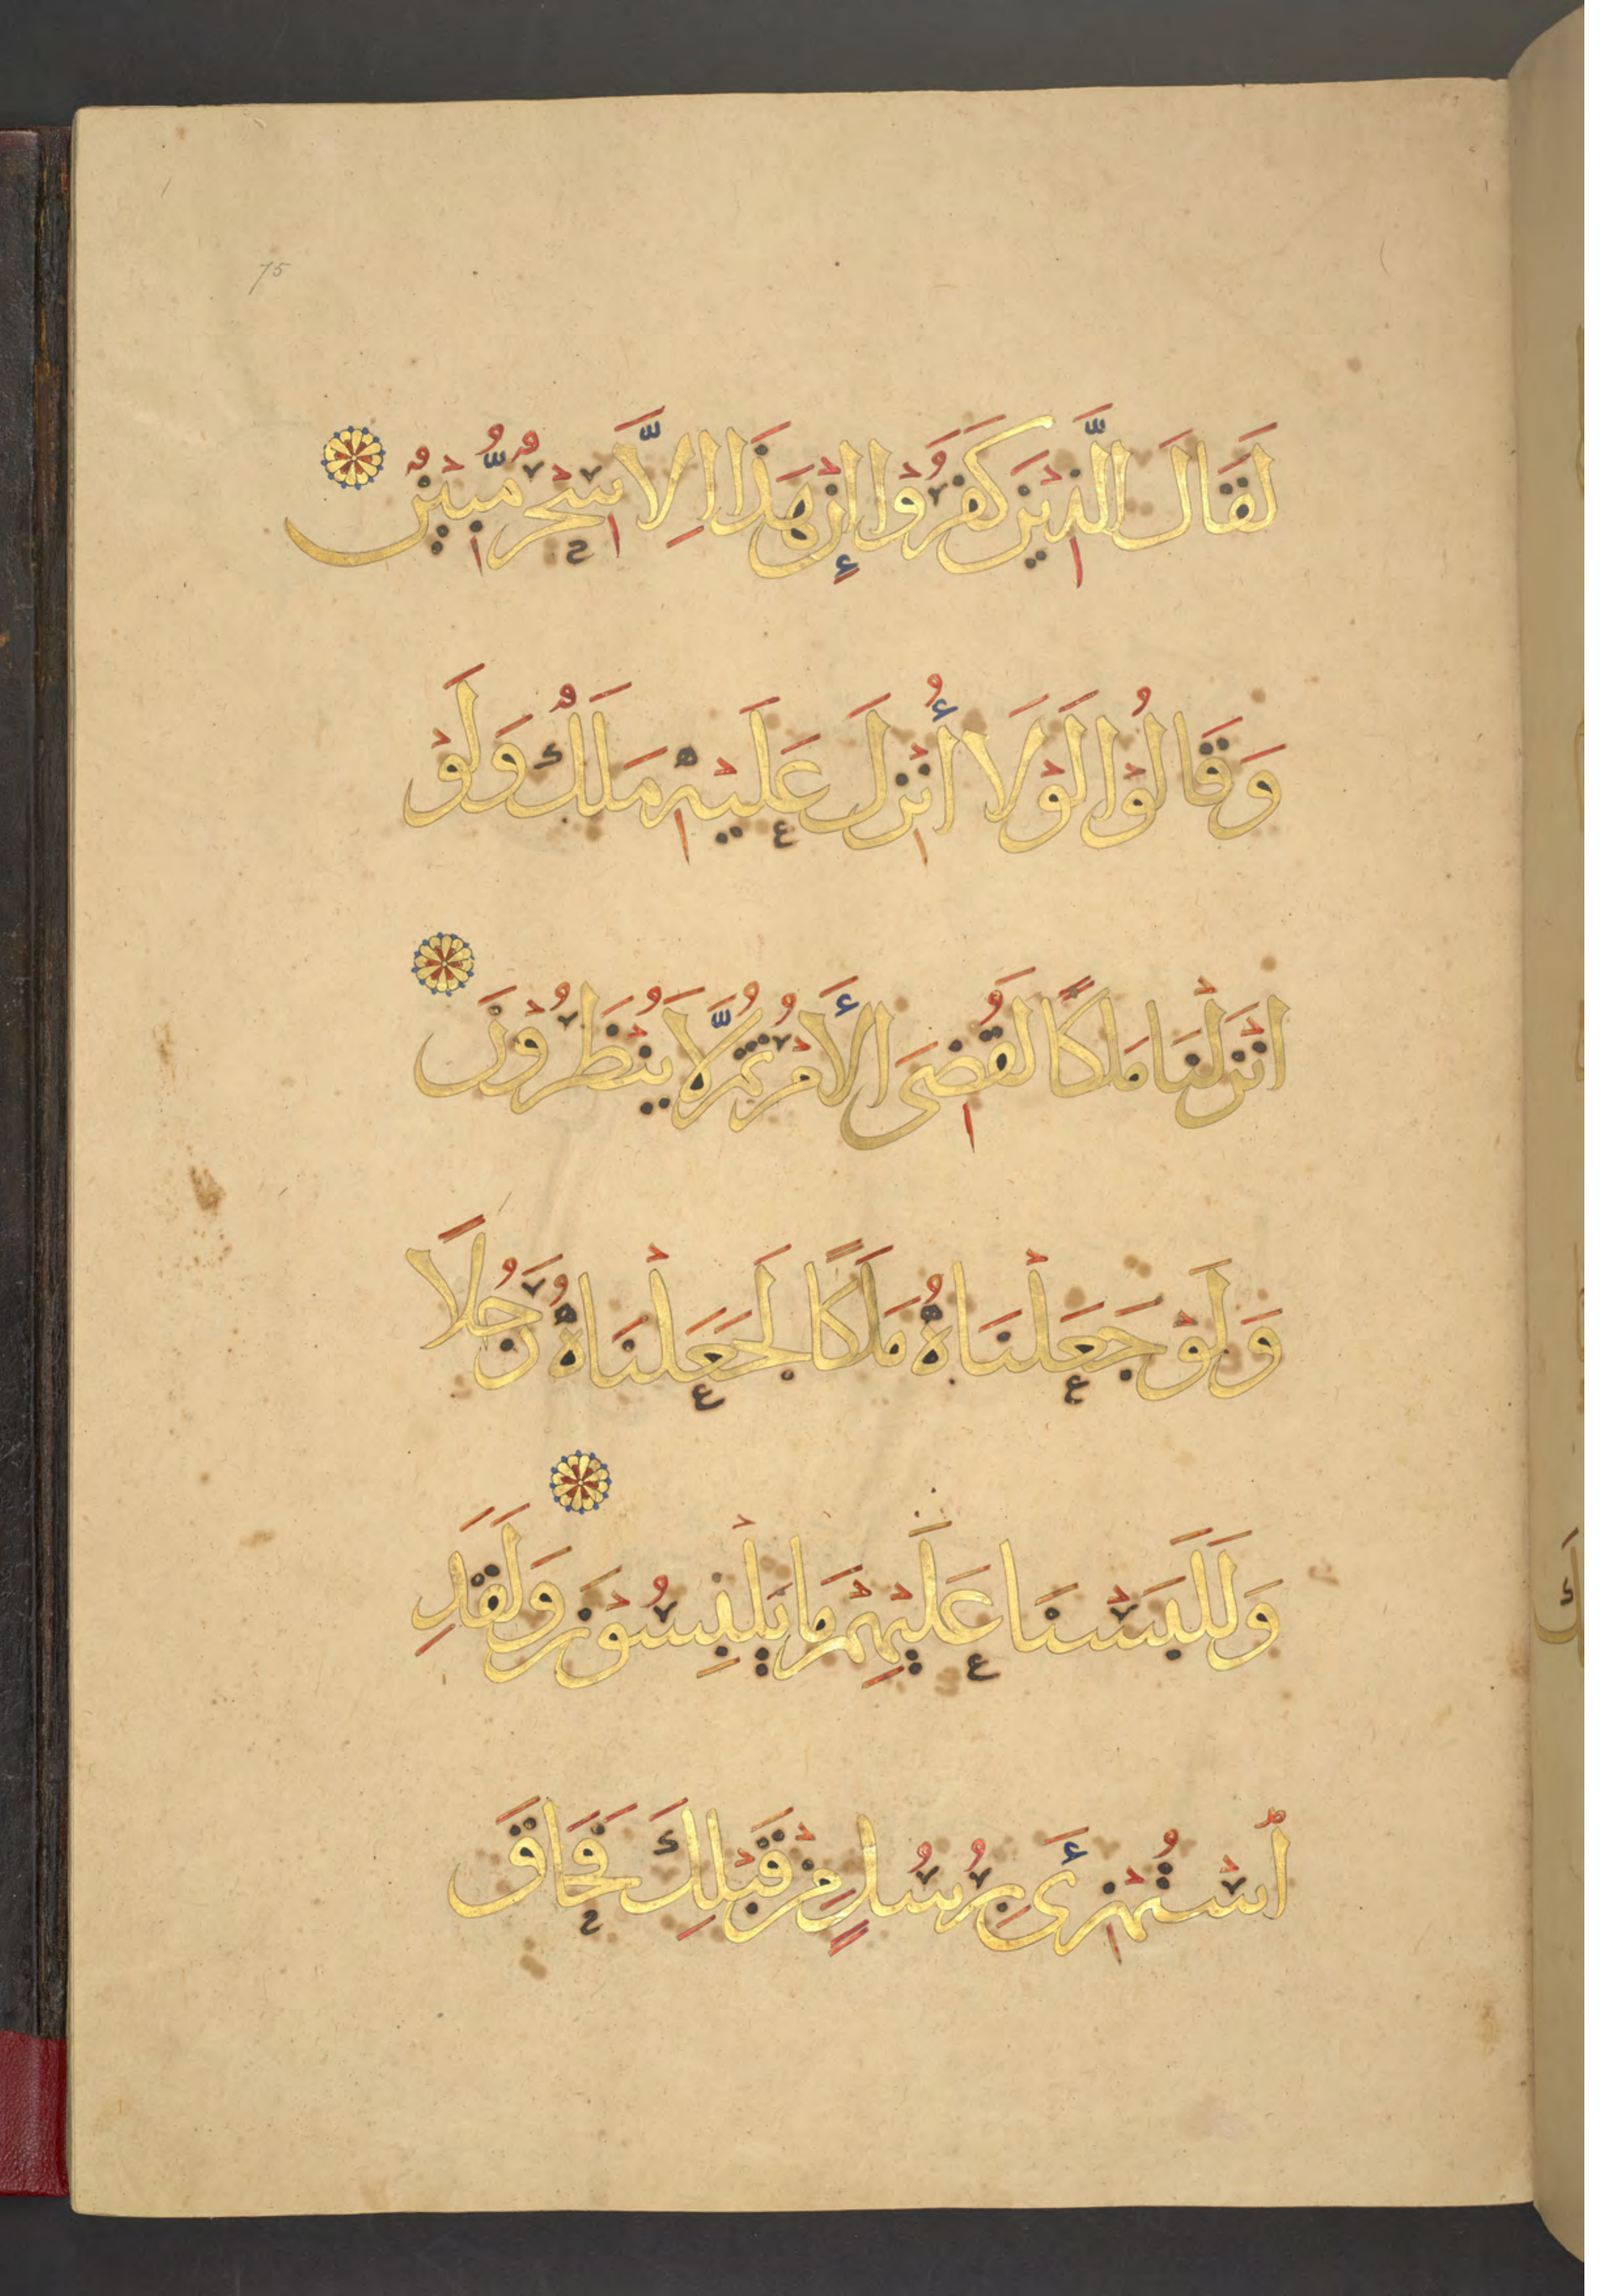 75
لَقَالَ الَّذِيْنَ كَفَرُوْا إِنْ هَذَا اِلَّا سِحْرٌ مُّبِيْنٌ
وَقَالُوْا لَوْلَا أُنْزِلَ عَلَيْهِ مَلَكٌ وَلَوْ
اَنْزَلْنَا مَلَكًا لَقُضِىَ الْأَمْرُ ثُمَّ لَا يُنْظَرُوْنَ
وَلَوْ جَعَلْنَاهُ مَلَكًا لَجَعَلْنَاهُ رَجُلًا
وَلَلَبَسْنَا عَلَيْهِمْ مَا يَلْبِسُوْنَ وَلَقَدِ
اسْتُهْزِئَ بِرُسُلٍ مِنْ قَبْلِكَ فَحَاقَ